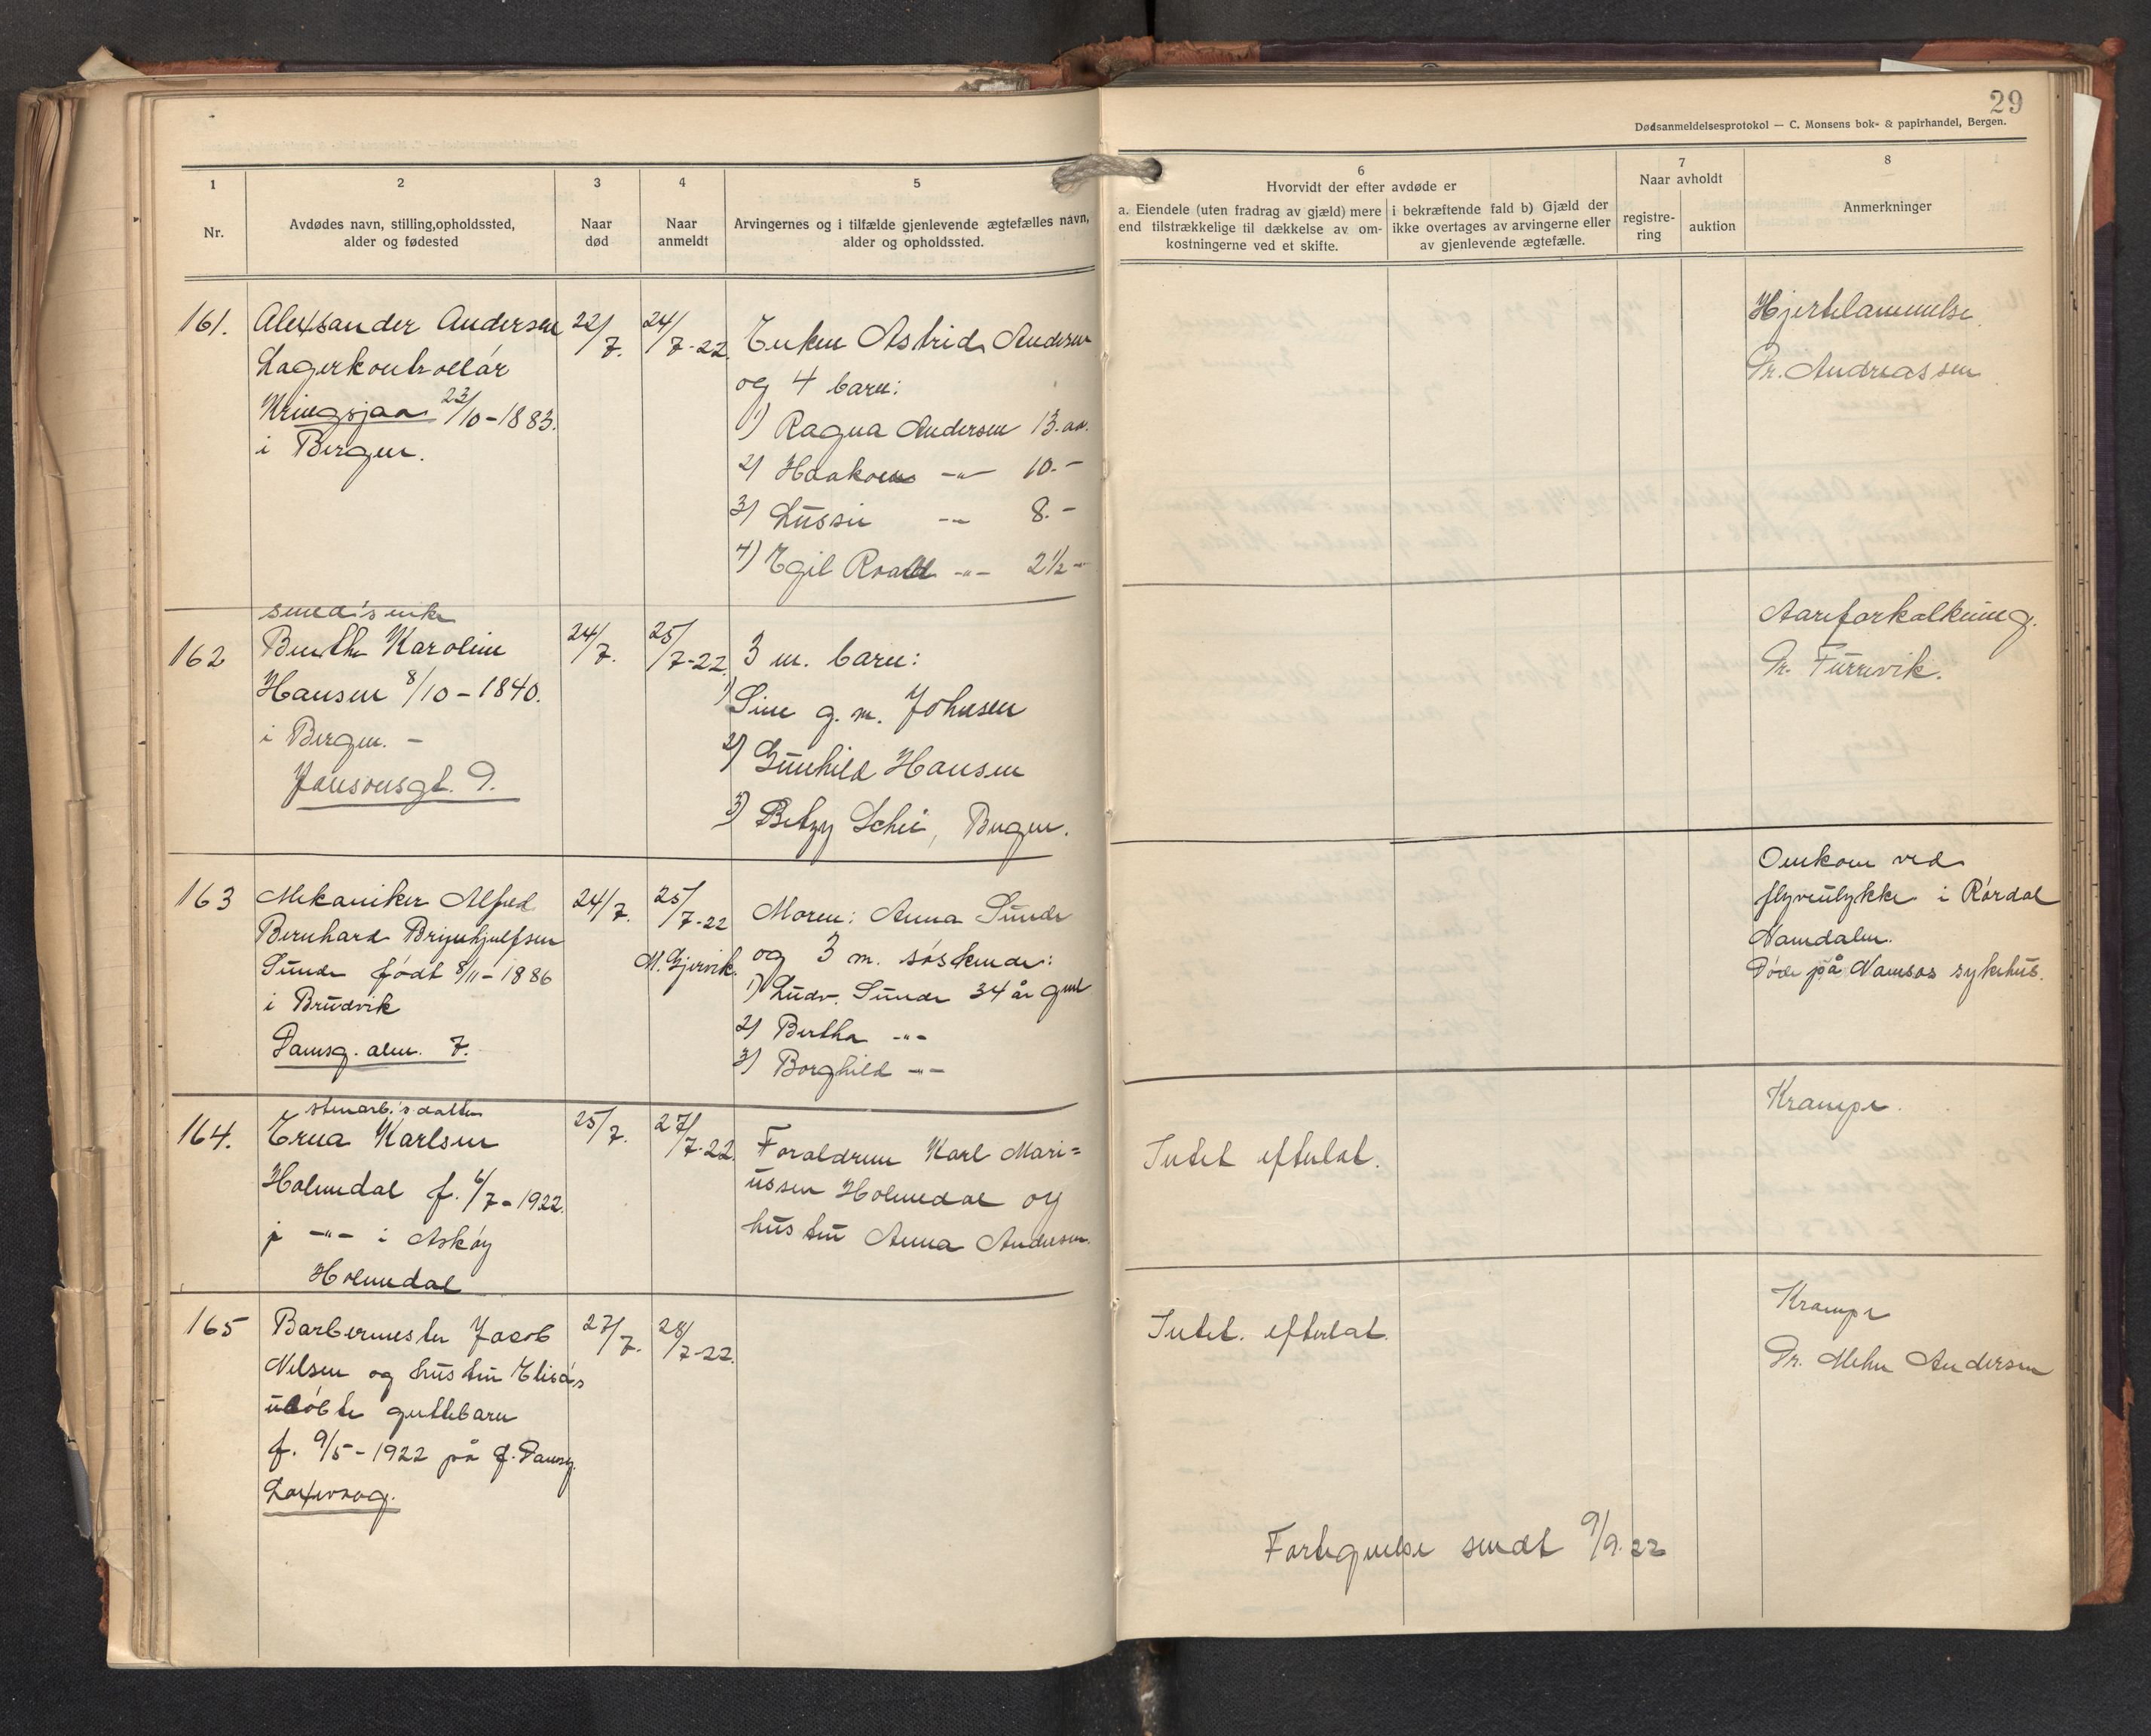 29
Dødsanmeldelsesprotokol — C. Monsens bok- & papirhandel, Bergen.
1
Nr.
2
Avdødes navn, stilling, opholdssted,
alder og fødested
3
Naar
død
4
Naar
anmeldt
5
Arvingernes og i tilfælde gjenlevende ægtefælles navn,
alder og opholdssted.
6
Hvorvidt der efter avdøde er
a. Eiendele (uten fradrag av gjæld) mere
end tilstrækkelige til dækkelse av om-
kostningerne ved et skifte.
i bekræftende fald b) Gjæld der
ikke overtages av arvingerne eller
av gjenlevende ægtefælle.
7
Naar avholdt
registre-
ring
auktion
8
Anmerkninger
161.
Alexsander Andersen
Lagerkontrollør
Kringsjaa 23/10-1883.
i Bergen.
22/7.
24/7-22.
Enken Astrid Andersen
og 4 barn:
1) Ragna Andersen 13. aar.
2) Haakon -"- 10.-
3) Lussie -"- 8.-
4) Egil Roald -"- 2½ -
Hjertelammelse.
Dr. Andreassen
162
smed's enke
Benthe Karoline
Hansen 8/10-1840.
i Bergen. -
Jansonsgt. 9.
24/7.
25/7-22.
3 m. barn:
1) Sine g. m. Johnsen
2) Gunhild Hansen
3) Betzy Schei, Bergen.
Aareforkalkning.
Dr. Furrevik.
163
Mekaniker Alfred
Bernhard Brynhjulfsen
Sunde født 8/11-1886
i Brudvik
Damsg. alm. 7.
24/7.
25/7-22
M. Gjervik.
Moren: Anna Sunde
og 3 m. søskende:
1) Ludv. Sunde 34 år gml
2) Bertha -"-
3) Borghild -"-
Omkom ved
flyveulykke i Rördal
Namdalen.
Døde på Namsos sykehus.
164.
stenarb.'s datter
Erna Karlsen
Holmedal f. 6/7-1922.
på -"- i Askøy
Holmedal
25/7.
27/7-22.
Foraldrene Karl Mari=
ussen Holmedal og
hustru Anna Andersen.
Intet efterlat.
Krampe.
165
Barbermester Jacob
Nilsen og hustru Elisa's
udøbte guttebarn
f. 9/5-1922 på f. Damsg.
Laxevaag.
27/7.
28/7-22.
Intet. efterlat.
Krampe
Dr. Mehn Andersen
Fortegnelse sendt 9/9.22